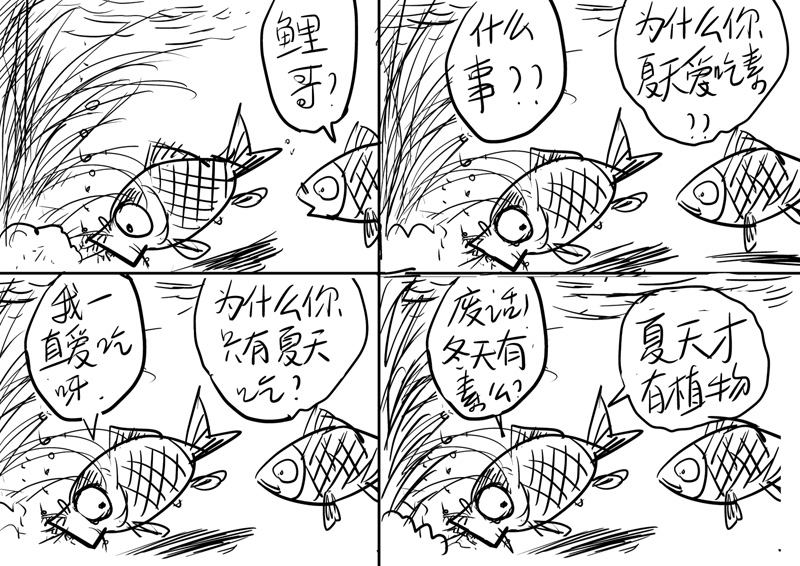 鲤
哥?
什么
事??
为什么你
夏天爱吃素
??
我一
直爱吃
呀.
为什么你
只有夏天
吃?
废话!
冬天有
素么?
夏天才
有植物